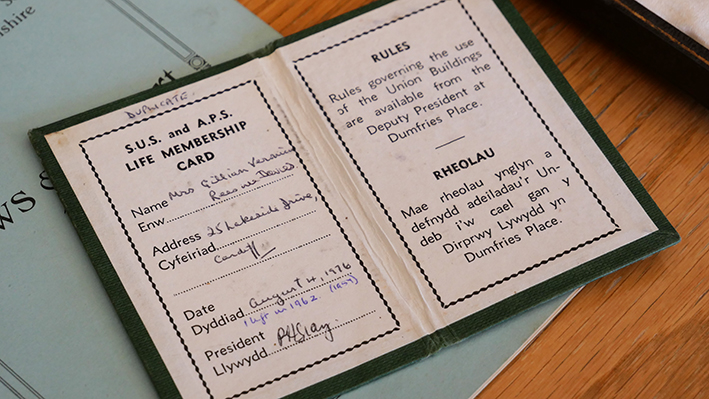 shire
ws
DUPLICATE
S.U.S. and A.P.S.
LIFE MEMBERSHIP
CARD
Name Mrs Gillian Veronica
Enw Rees née Davies
Address 25 Lakeside Drive,
Cyfeiriad
Cardiff
Date
Dyddiad August 4, 1976
I left in 1962.
President
Llywydd
RULES
Rules governing the use
of the Union Buildings
are available from the
Deputy President at
Dumfries Place.
RHEOLAU
Mae rheolau ynglyn a
defnydd adeiladau'r Un-
deb i'w cael gan y
Dirprwy Lywydd yn
Dumfries Place.